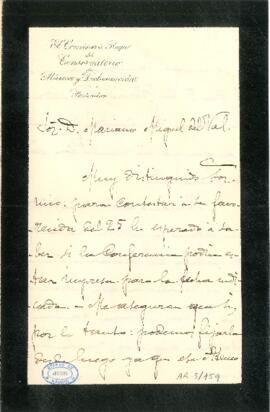 El Comisario Regio
del
Conservatorio
de
Música y Declamación
Particular
Sor. D. Mariano Miguel del Val.
Muy distinguido Sor.
mio: para contestar a su favo-
recida del 25 he esperado a sa-
ber si la Conferencia podia es-
tar impresa para la fecha indi-
cada. - Me aseguran que si,
por lo tanto podemos fijarla
desde luego ya que
AR. 3/459